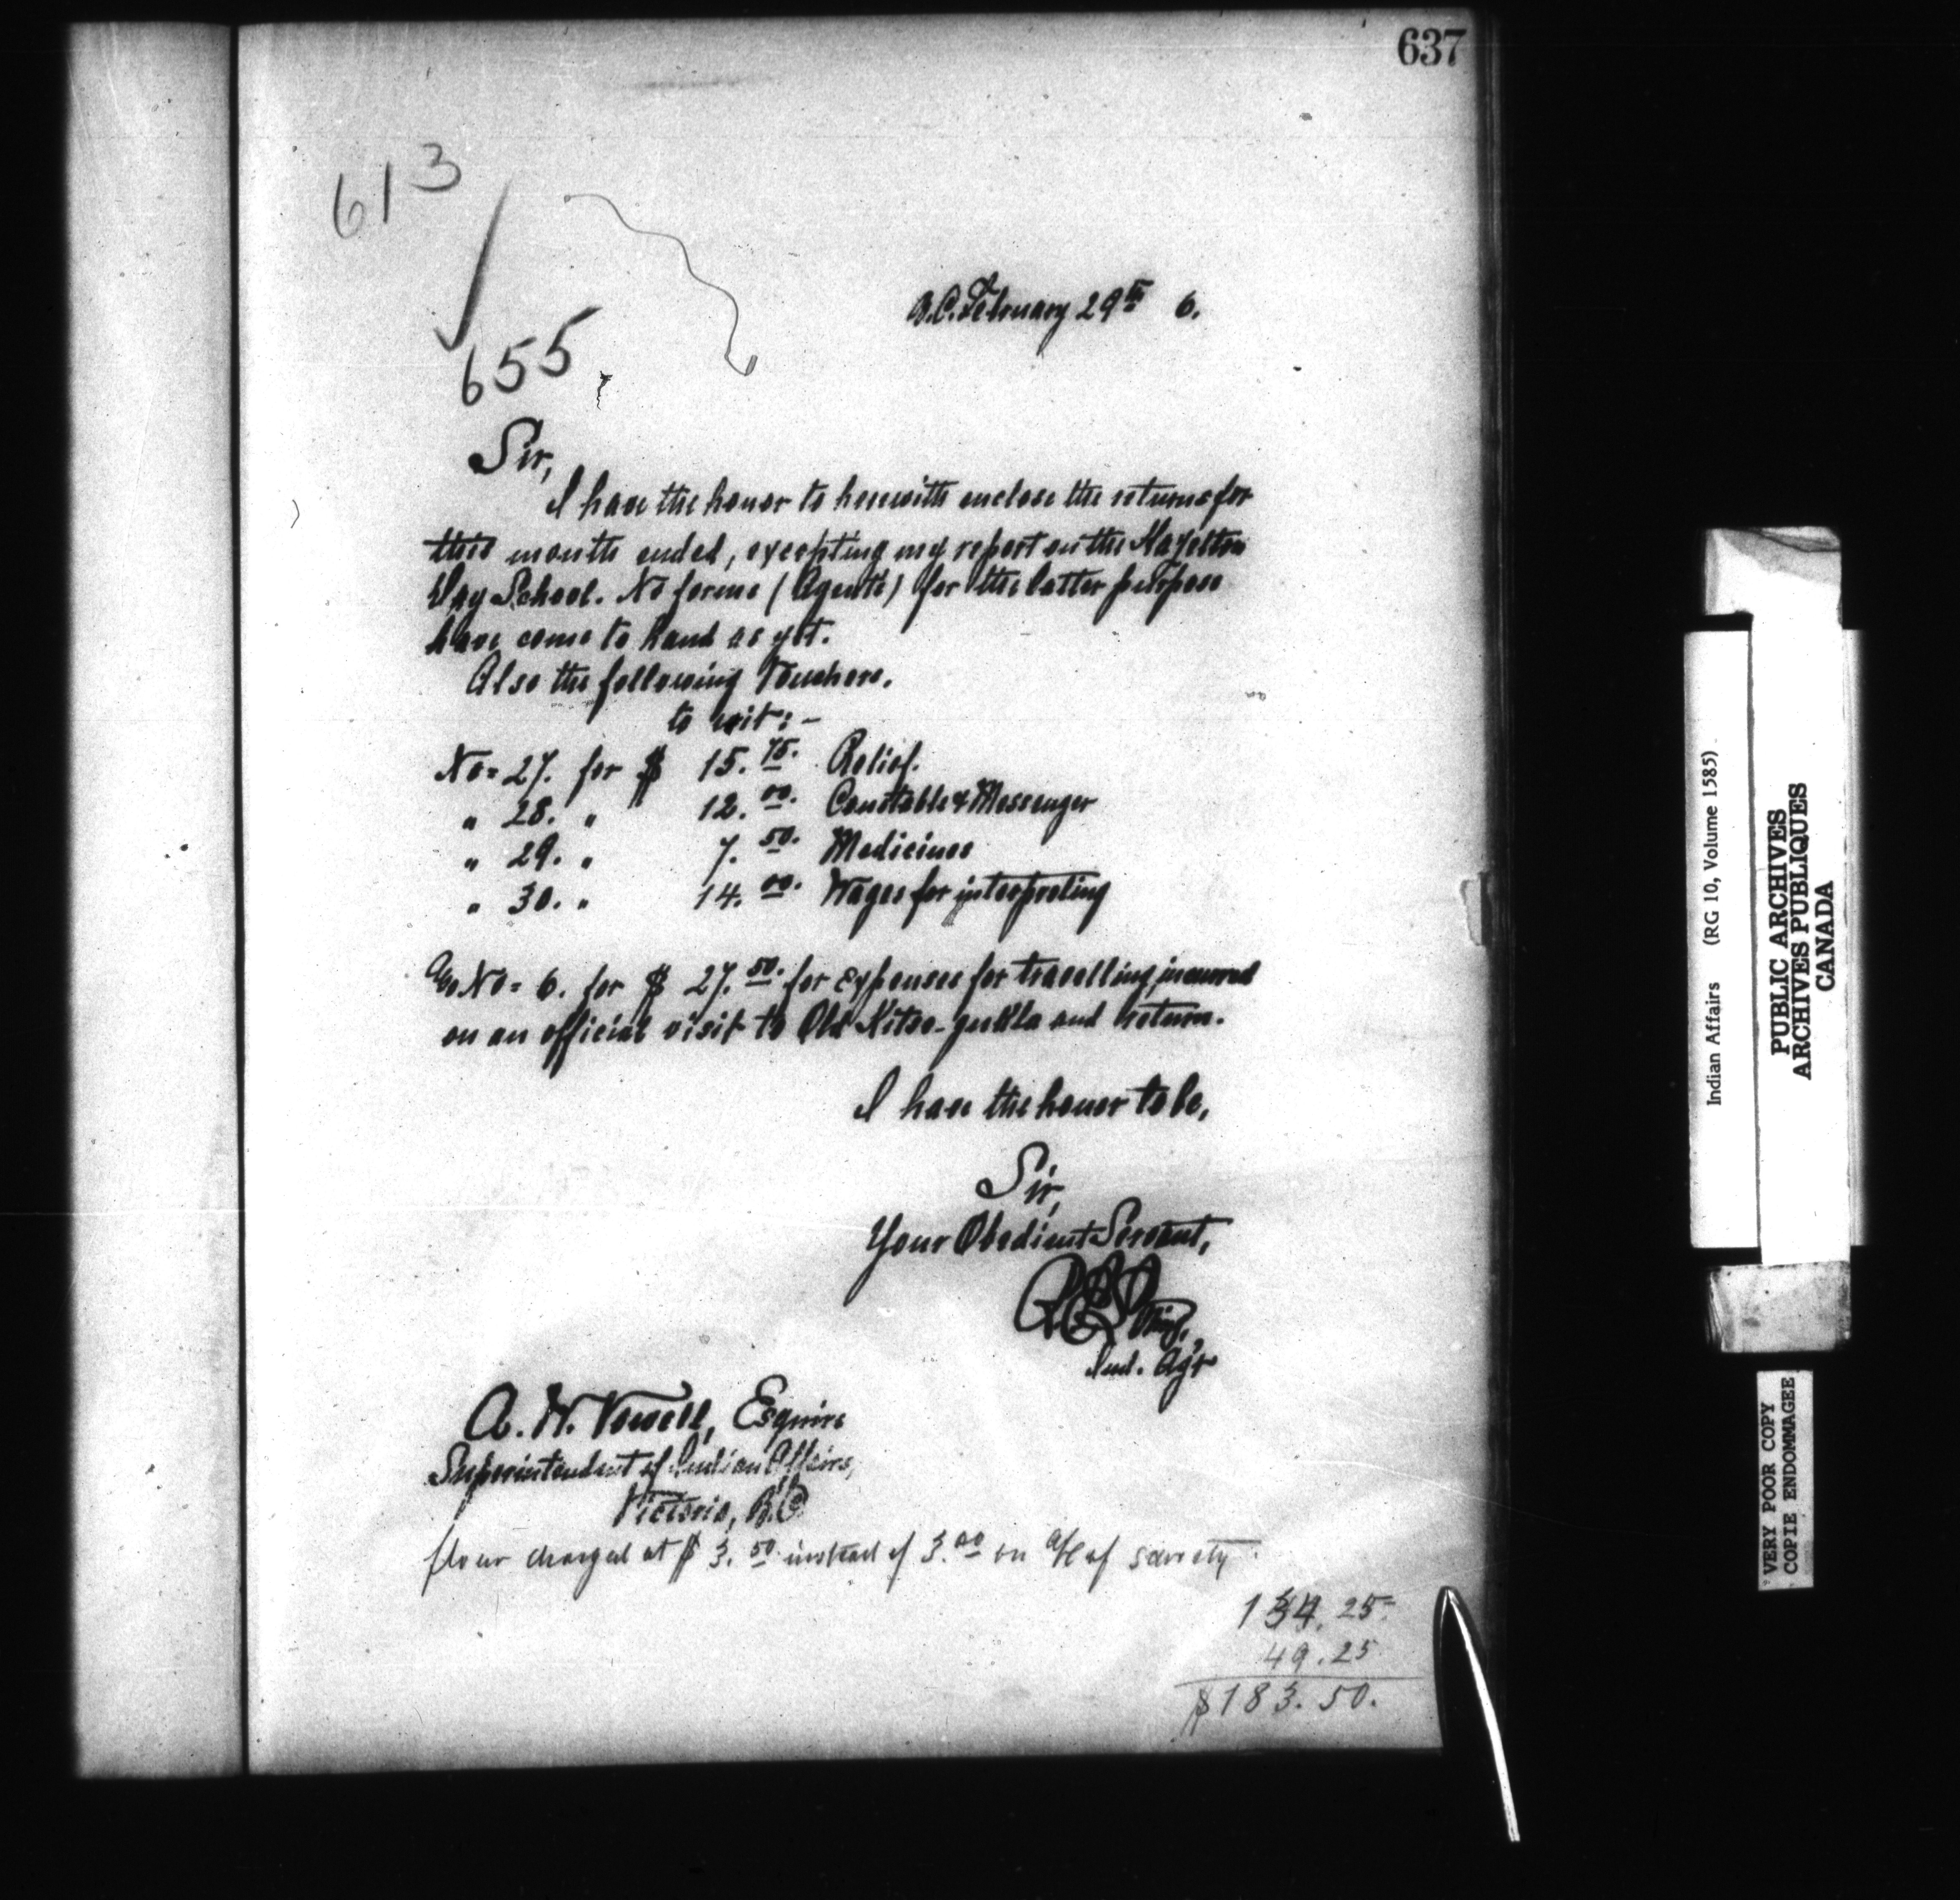 637
613
655
B.C. February 29th 6.
Sir,
I have the honor to herewith enclose the returns for
this month ended, excepting my report on the Hazelton
Day School. No forms (Agents) for the latter purpose
have come to hand as yet.
Also the following Vouchers.
to wit: -
No= 27. for $ 15.75. Relief.
" 28. " 12.00. Constable & Messenger
" 29. " 7.50. Medicines
" 30. " 14.00. Wages for interpreting
No= 6. for $ 27.50. for expenses for travelling incurred
on an official visit to Old Kitse-gukla and return.
I have the honor to be,
Sir,
Your Obedient Servant,
Ind. Agt
A. W. Vowell, Esquire
Superintendent of Indian Affairs,
Victoria, B.C.
flour charged at $ 3.50 instead of 3.00 on a/c of
134.25
49.25
$183.50.
Indian Affairs (RG 10, Volume 1585)
PUBLIC ARCHIVES
ARCHIVES PUBLIQUES
CANADA
VERY POOR COPY
COPIE ENDOMMAGEE